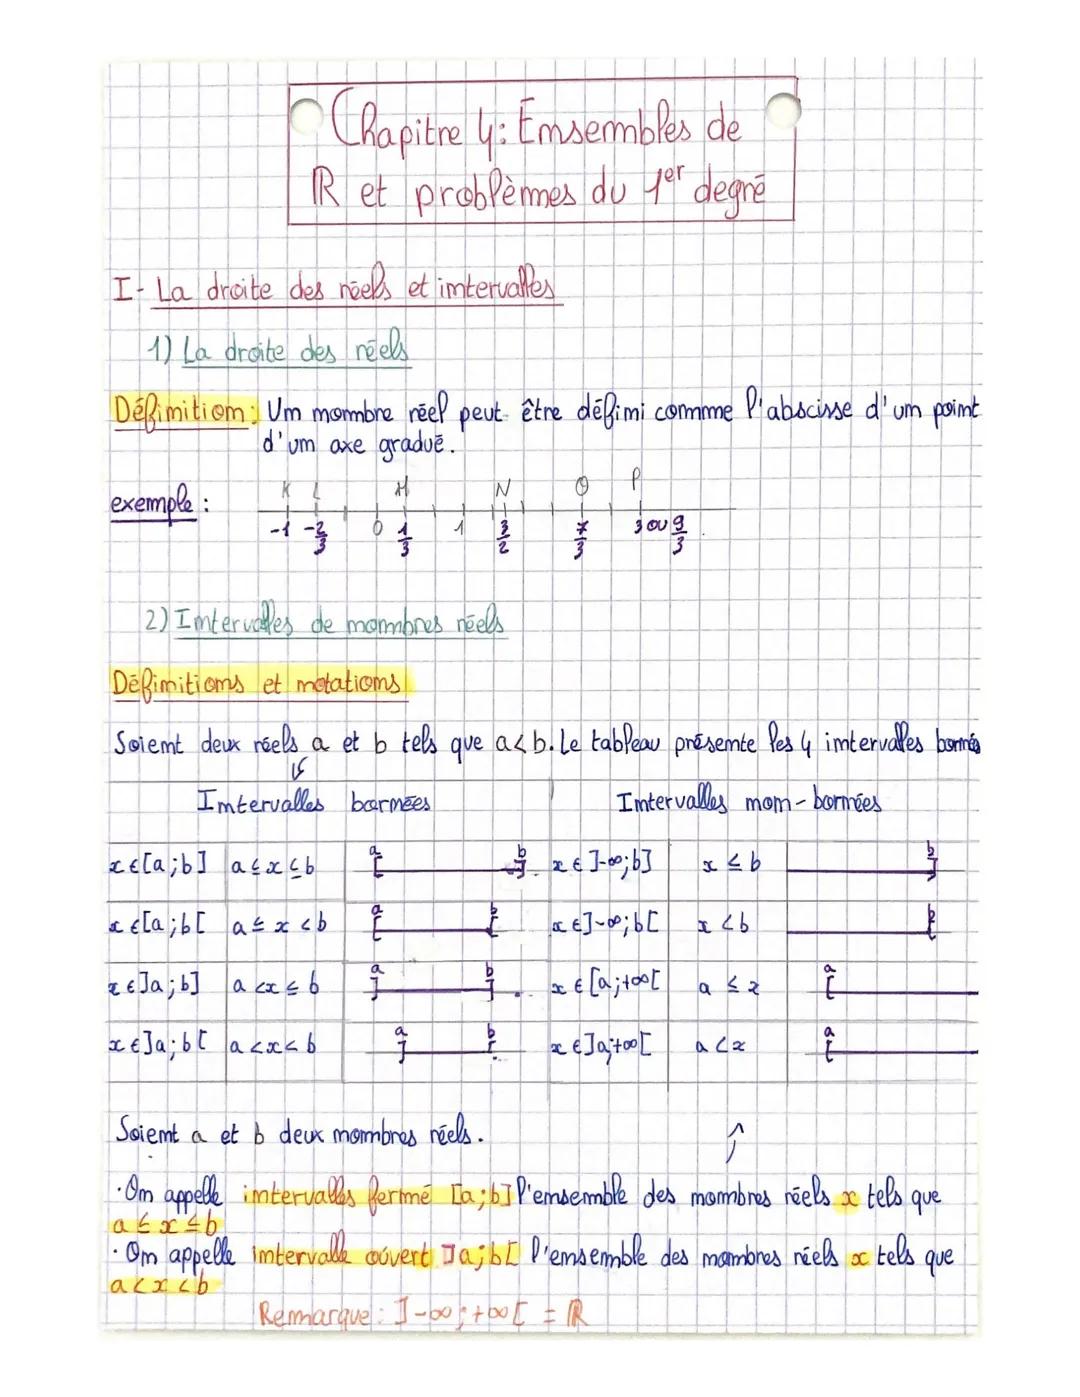 Chapitre 4: Ensembles de
ℝ et problèmes du 1er degré
I- La droite des réels et intervalles
1) La droite des réels
Définition: Un nombre réel peut être défini comme l'abscisse d'un point
d'un axe gradué.
exemple :
K L M N O P
-1 -2/3 0 1/3 1 3/2 7/3 3 ou 9/3
2) Intervalles de nombres réels
Définitions et notations
Soient deux réels a et b tels que a<b. Le tableau présente les 4 intervalles bornés
Intervalles bornées Intervalles non-bornées
x∈[a;b] a≤x≤b a b x∈]-∞;b] x≤b b
x∈[a;b[ a≤x<b a b x∈]-∞;b[ x<b b
x∈]a;b] a<x≤b a b x∈[a;+∞[ a≤x a
x∈]a;b[ a<x<b a b x∈]a;+∞[ a<x a
Soient a et b deux nombres réels.
· On appelle intervalles fermé [a;b] l'ensemble des nombres réels x tels que
a≤x≤b
· On appelle intervalle ouvert ]a;b[ l'ensemble des nombres réels x tels que
a<x<b
Remarque : ]-∞;+∞[ = ℝ